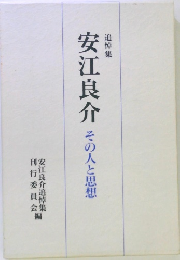 追悼集
安江良介
その人と思想
安江良介追悼集
刊行委員会編